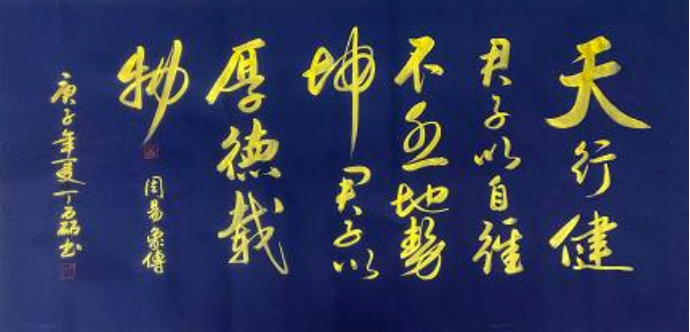 天行健
君子以自强
不息地势
坤君子以
厚德载
物
周易象傳
庚子年夏丁石磊书